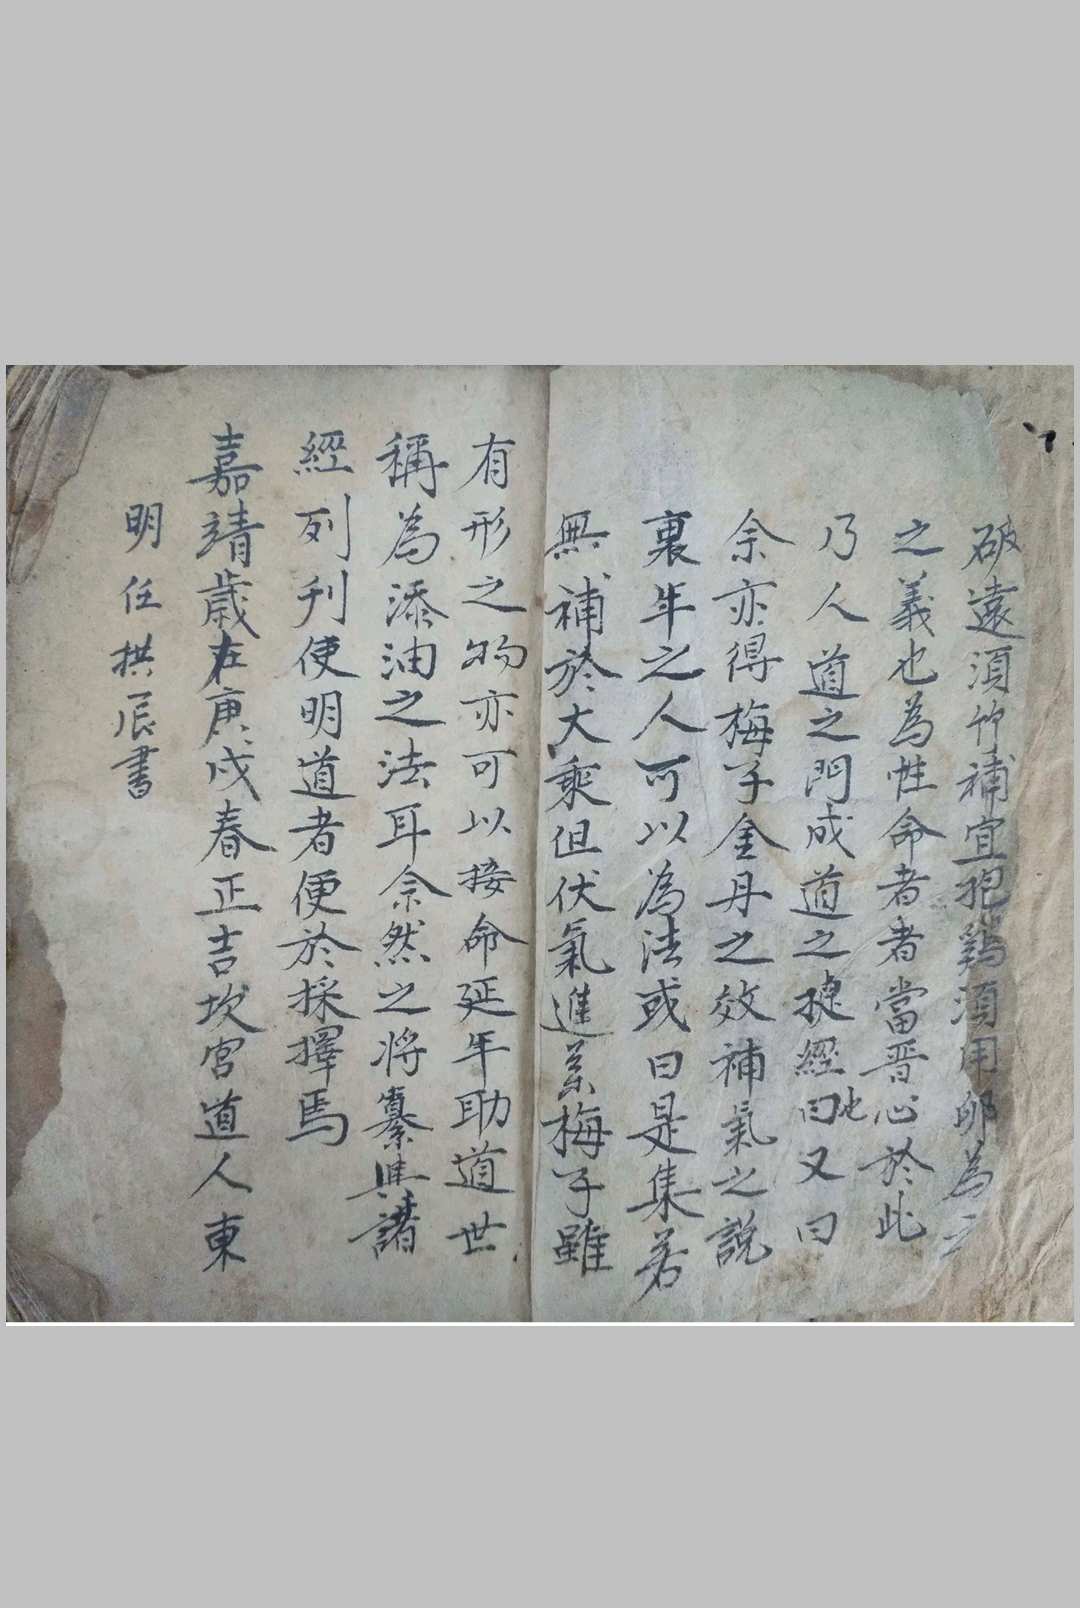 破遠須竹補宜抱鷄須用卵為之
之義也為性命者者當晋心於此
乃人道之門成道之捷經曰也又曰
余亦得梅子金丹之效補氣之說
裏年之人可以為法或曰是集若
無補於大乘但伏氣進系梅子雖
有形之物亦可以接命延年助道世
稱為添油之法耳余然之将纂與諸
經列刋使明道者便於採擇焉
嘉靖歲在庚戍春正吉坎宮道人東
明任拱辰書